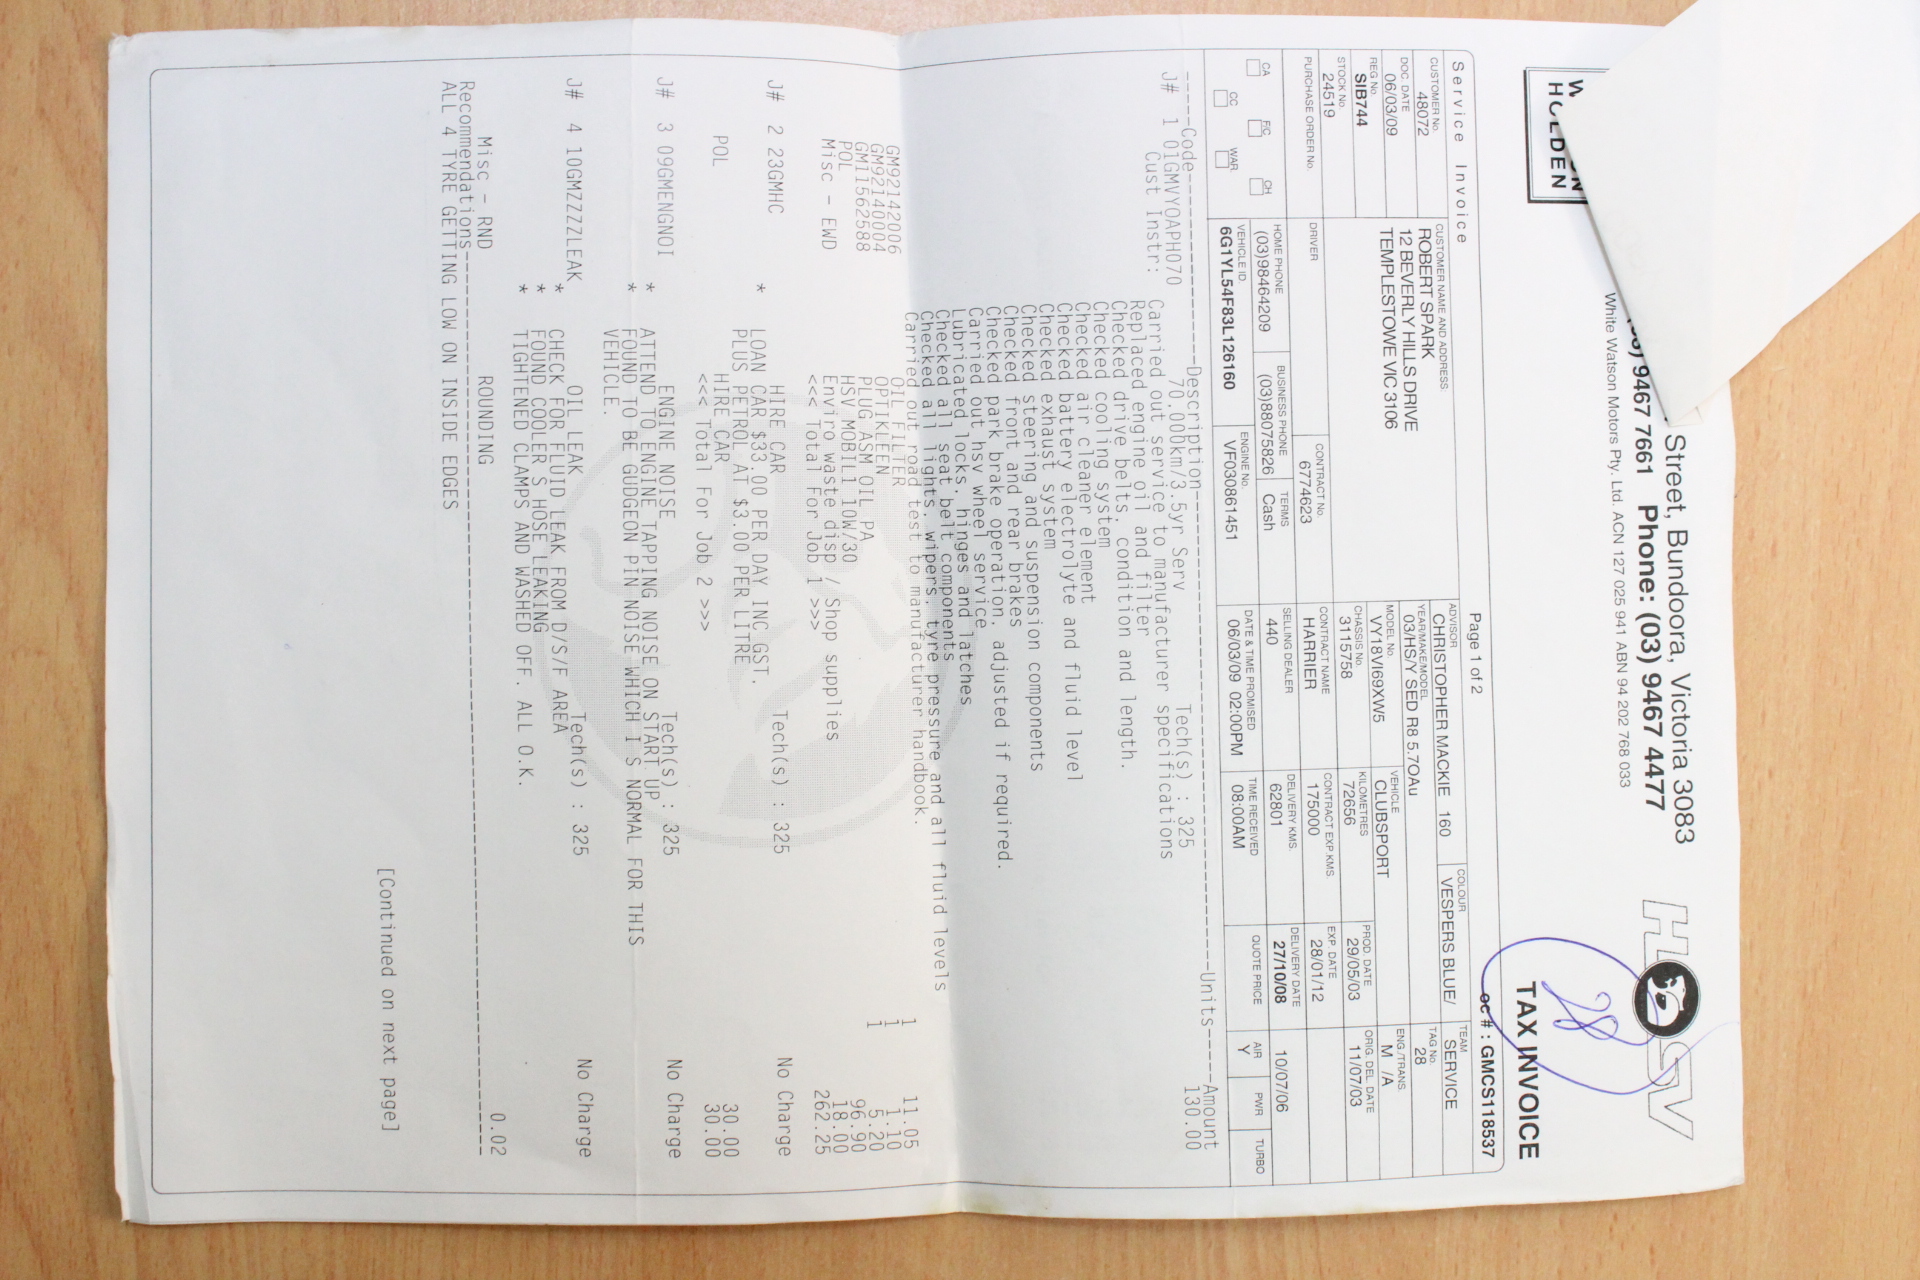 HOLDEN
Street, Bundoora, Victoria 3083
9467 7661 Phone: (03) 9467 4477
White Watson Motors Pty. Ltd. ACN 127 025 941 ABN 94 202 768 033
HSV
28
TAX INVOICE
Service Invoice
Page 1 of 2
oc # : GMCS118537
CUSTOMER No.
48072
CUSTOMER NAME AND ADDRESS
ROBERT SPARK
12 BEVERLY HILLS DRIVE
TEMPLESTOWE VIC 3106
ADVISOR
CHRISTOPHER MACKIE 160
COLOUR
VESPERS BLUE/
TEAM
SERVICE
DOC. DATE
06/03/09
YEAR/MAKE/MODEL
03/HS/Y SED R8 5.7OAu
TAG No.
28
REG No.
SIB744
MODEL No.
VY18VI69XW5
VEHICLE
CLUBSPORT
ENG/TRANS.
M /A
STOCK No.
24519
CHASSIS No.
3115758
KILOMETRES
72656
PROD. DATE
29/05/03
ORIG. DEL. DATE
11/07/03
PURCHASE ORDER No.
DRIVER
CONTRACT No.
6774623
CONTRACT NAME
HARRIER
CONTRACT EXP KMS.
175000
EXP. DATE
28/01/12
CA
F/C
CH
CC
WAR
HOME PHONE
(03)98464209
BUSINESS PHONE
(03)88075826
TERMS
Cash
SELLING DEALER
440
DELIVERY KMS.
62801
DELIVERY DATE
27/10/08
10/07/06
VEHICLE ID.
6G1YL54F83L126160
ENGINE No.
VF03086I451
DATE & TIME PROMISED
06/03/09 02:00PM
TIME RECEIVED
08:00AM
QUOTE PRICE
AIR
Y
PWR
TURBO
----Code--------------------Description----------------------------------------Units----Amount
J# 1 01GMVYOAPH070 70,000km/3.5yr Serv Tech(s) : 325 130.00
Cust Instr: Carried out service to manufacturer specifications
Replaced engine oil and filter
Checked drive belts, condition and length.
Checked cooling system
Checked air cleaner element
Checked battery electrolyte and fluid level
Checked exhaust system
Checked steering and suspension components
Checked front and rear brakes
Checked park brake operation, adjusted if required.
Carried out hsv wheel service
Lubricated locks, hinges and latches
Checked all seat belt components
Checked all lights, wipers, tyre pressure and all fluid levels
Carried out road test to manufacturer handbook.
GM92142006 OIL FILTER 1 11.05
GM92140004 OPTIKLEEN 1 11.10
GM11562588 PLUG ASM OIL PA 1 5.20
POL HSV MOBIL1 10W/30 96.90
Misc - EWD Enviro waste disp / Shop supplies 18.00
<<< Total For Job 1 >>> 262.25
J# 2 23GMHC HIRE CAR Tech(s) : 325 No Charge
* LOAN CAR $33.00 PER DAY INC GST.
PLUS PETROL AT $3.00 PER LITRE
POL HIRE CAR 30.00
<<< Total For Job 2 >>> 30.00
J# 3 09GMENGNOI ENGINE NOISE Tech(s) : 325 No Charge
* ATTEND TO ENGINE TAPPING NOISE ON START UP
* FOUND TO BE GUDGEON PIN NOISE WHICH I S NORMAL FOR THIS
VEHICLE.
J# 4 10GMZZZZLEAK OIL LEAK Tech(s) : 325 No Charge
* CHECK FOR FLUID LEAK FROM D/S/F AREA
* FOUND COOLER S HOSE LEAKING
* TIGHTENED CLAMPS AND WASHED OFF. ALL O.K.
Misc - RND ROUNDING 0.02
Recommendations----------------------------------------
ALL 4 TYRE GETTING LOW ON INSIDE EDGES
[Continued on next page]